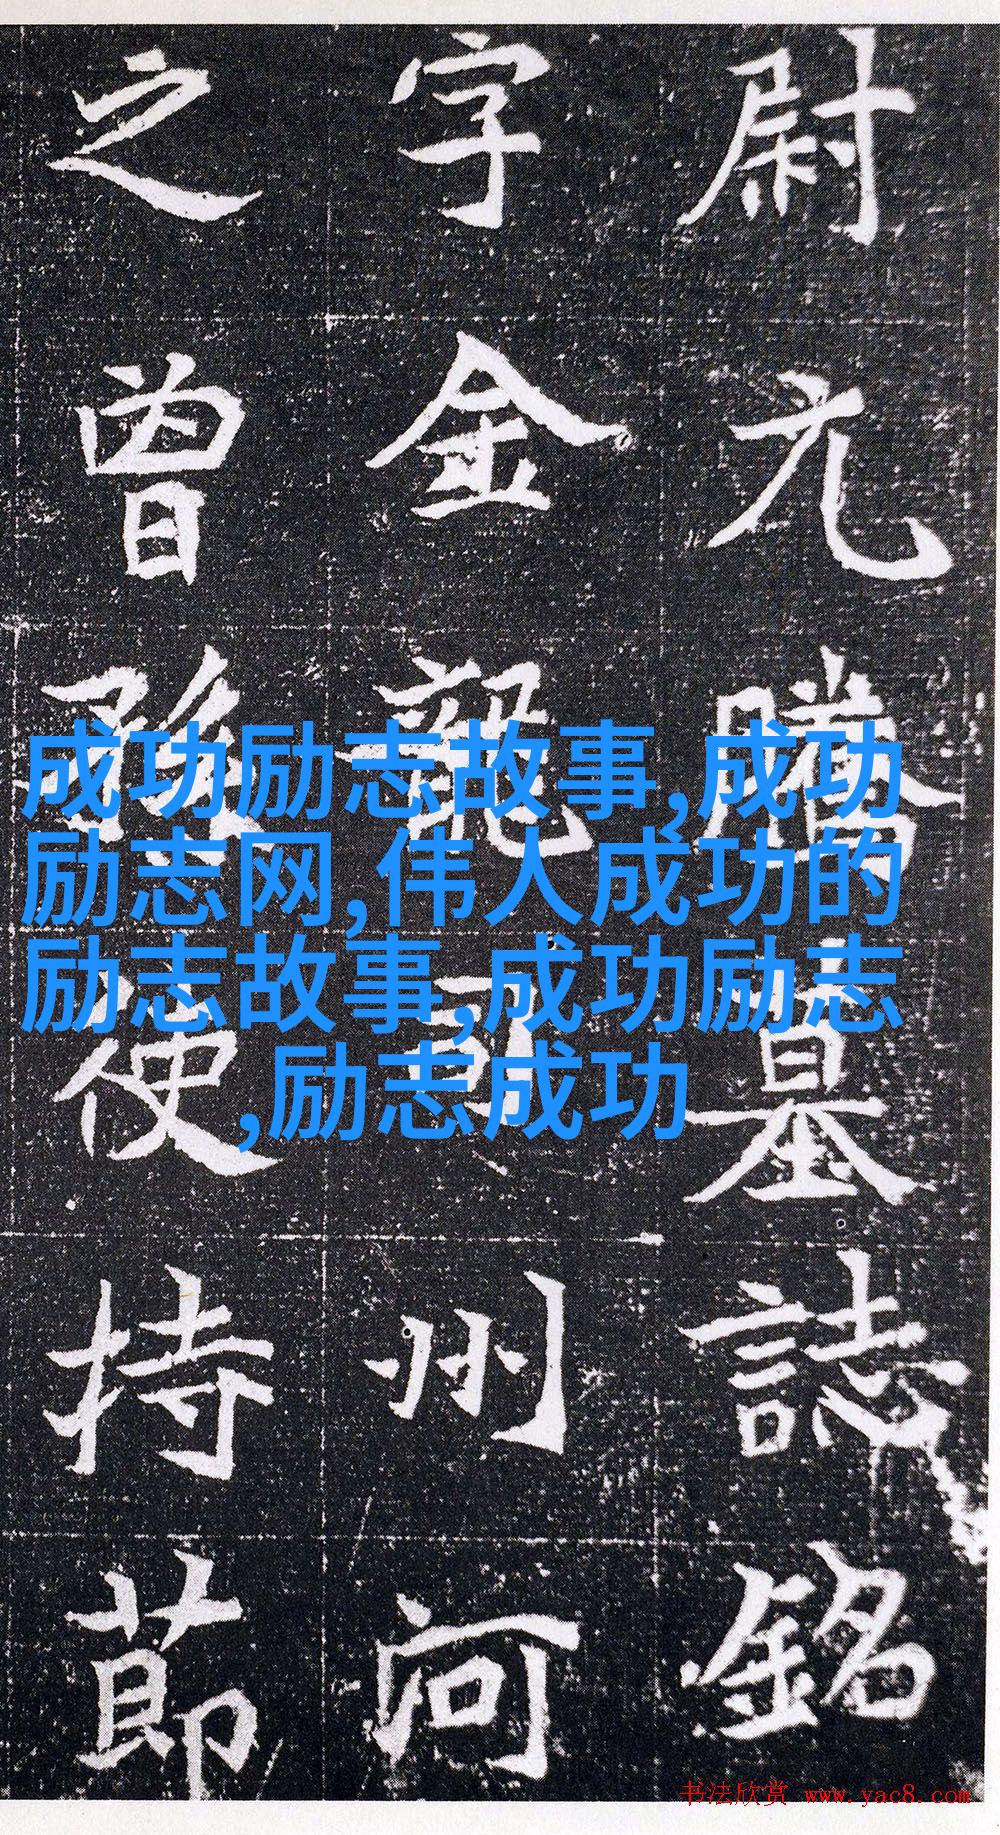 尉元騰墓誌銘
字金龍司州河
之曾孫使持節
成功励志故事,成功
励志网,伟人成功的
励志故事,成功励志
,励志成功
书法欣赏 www.yac8.com